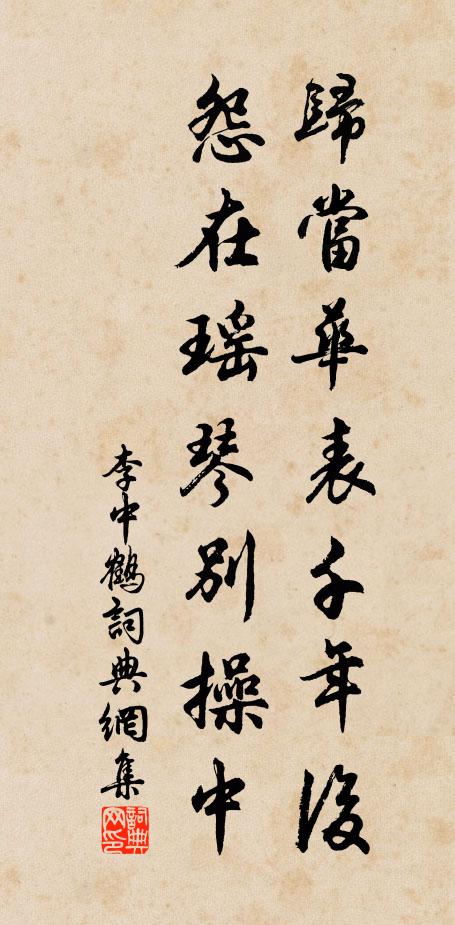 歸當華表千年後
怨在瑶琴別操中
李中鶴詞典網集
詞典网印